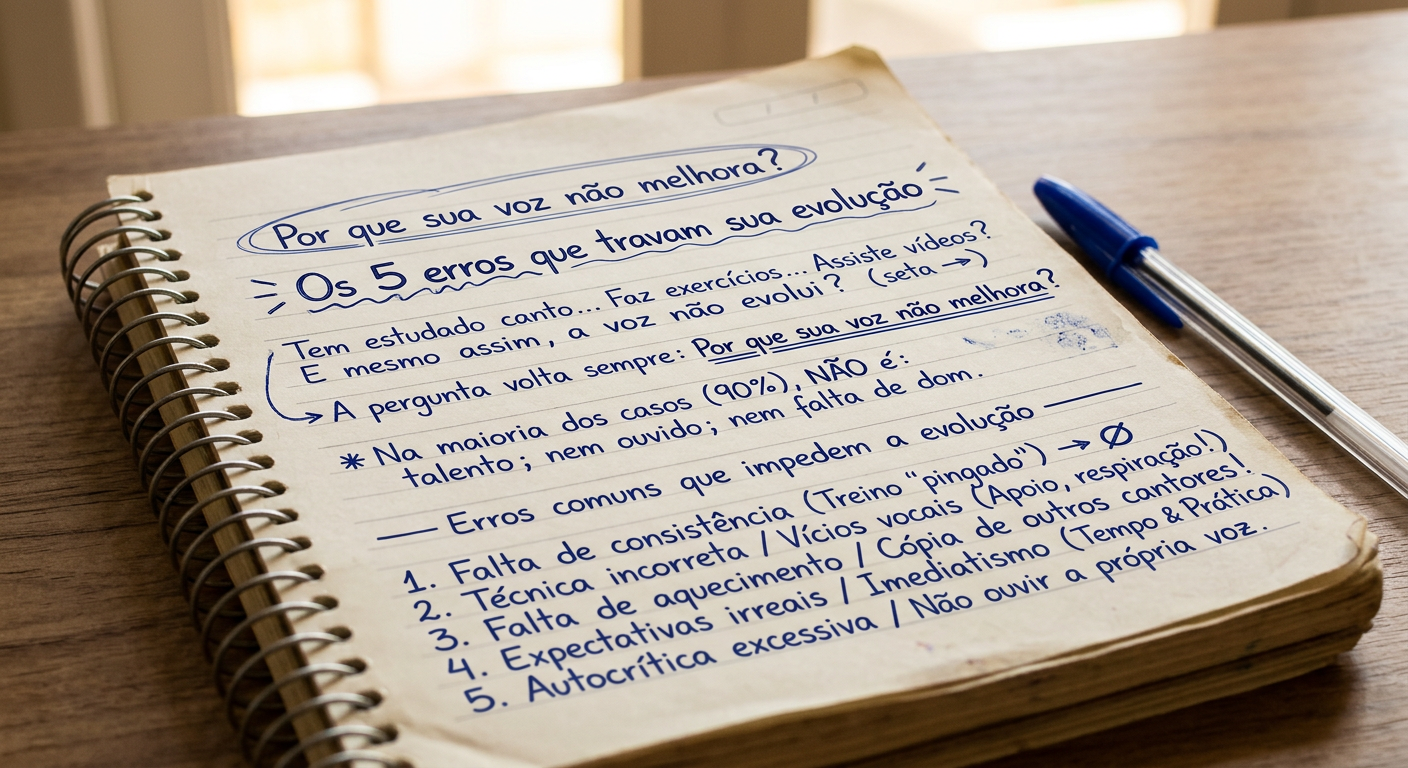 Por que sua voz não melhora?
Os 5 erros que travam sua evolução
Tem estudado canto... Faz exercícios... Assiste vídeos?
E mesmo assim, a voz não evolui? (seta →)
→ A pergunta volta sempre: Por que sua voz não melhora?
* Na maioria dos casos (90%), NÃO é:
talento; nem ouvido; nem falta de dom.
— Erros comuns que impedem a evolução —
1. Falta de consistência (Treino "pingado") → Ø
2. Técnica incorreta / Vícios vocais (Apoio, respiração!)
3. Falta de aquecimento / Cópia de outros cantores!
4. Expectativas irreais / Imediatismo (Tempo & Prática)
5. Autocrítica excessiva / Não ouvir a própria voz.